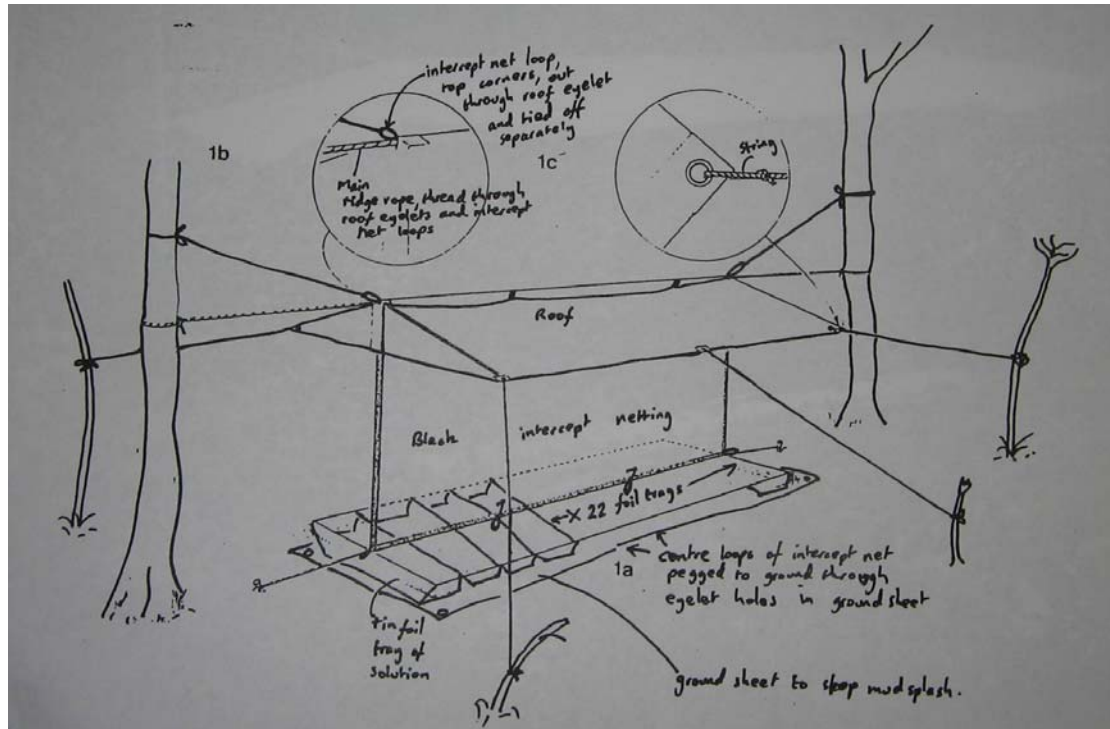 intercept net loop,
top corners, out
through roof eyelet
and tied off
separately
1b
1c
String
Main
ridge rope, thread through
roof eyelets and intercept
net loops
Roof
Black
intercept netting
x 22 foil trays
centre loops of intercept net
pegged to ground through
eyelet holes in groundsheet
1a
tinfoil
tray of
solution
ground sheet to stop mudsplash.